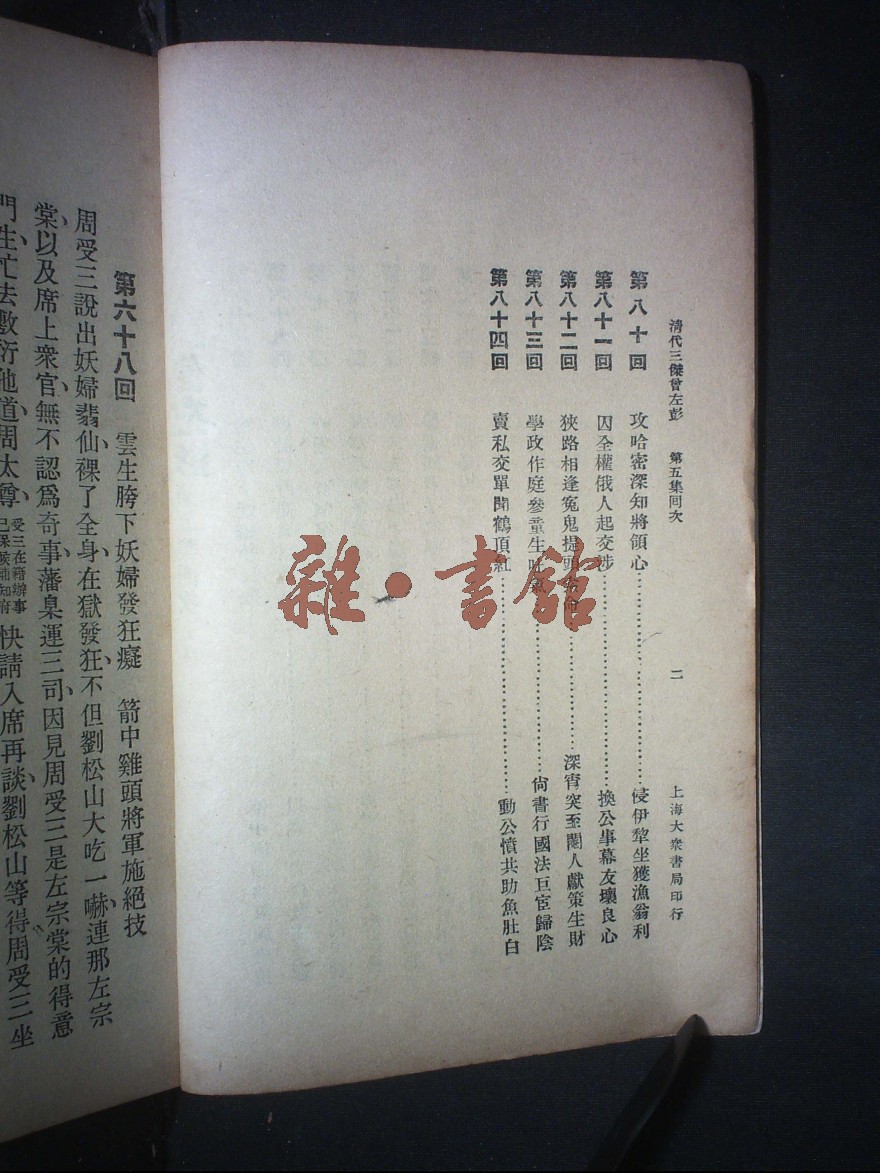 清代三傑曾左彭　第五集回次　二　上海大衆書局印行
第八十回　攻哈密深知將領心……侵伊犂坐獲漁翁利
第八十一回　囚全權俄人起交涉……換公事幕友壞良心
第八十二回　狹路相逢冤鬼提頭……深宵突至閽人獻策生財
第八十三回　學政作庭參童生吐氣……尙書行國法巨宦歸陰
第八十四回　賣私交單聞鶴頂紅……動公憤共助魚肚白
雜·書館
第六十八回　雲生胯下妖婦發狂癡　箭中雞頭將軍施絕技
周受三說出妖婦翡仙、裸了全身、在獄發狂、不但劉松山大吃一嚇、連那左宗
棠、以及席上衆官、無不認爲奇事、藩臬運三司、因見周受三是左宗棠的得意
門生、忙去敷衍他道、周太尊、受三在籍辦事已保候補知府快請入席再談、劉松山等得周受三坐